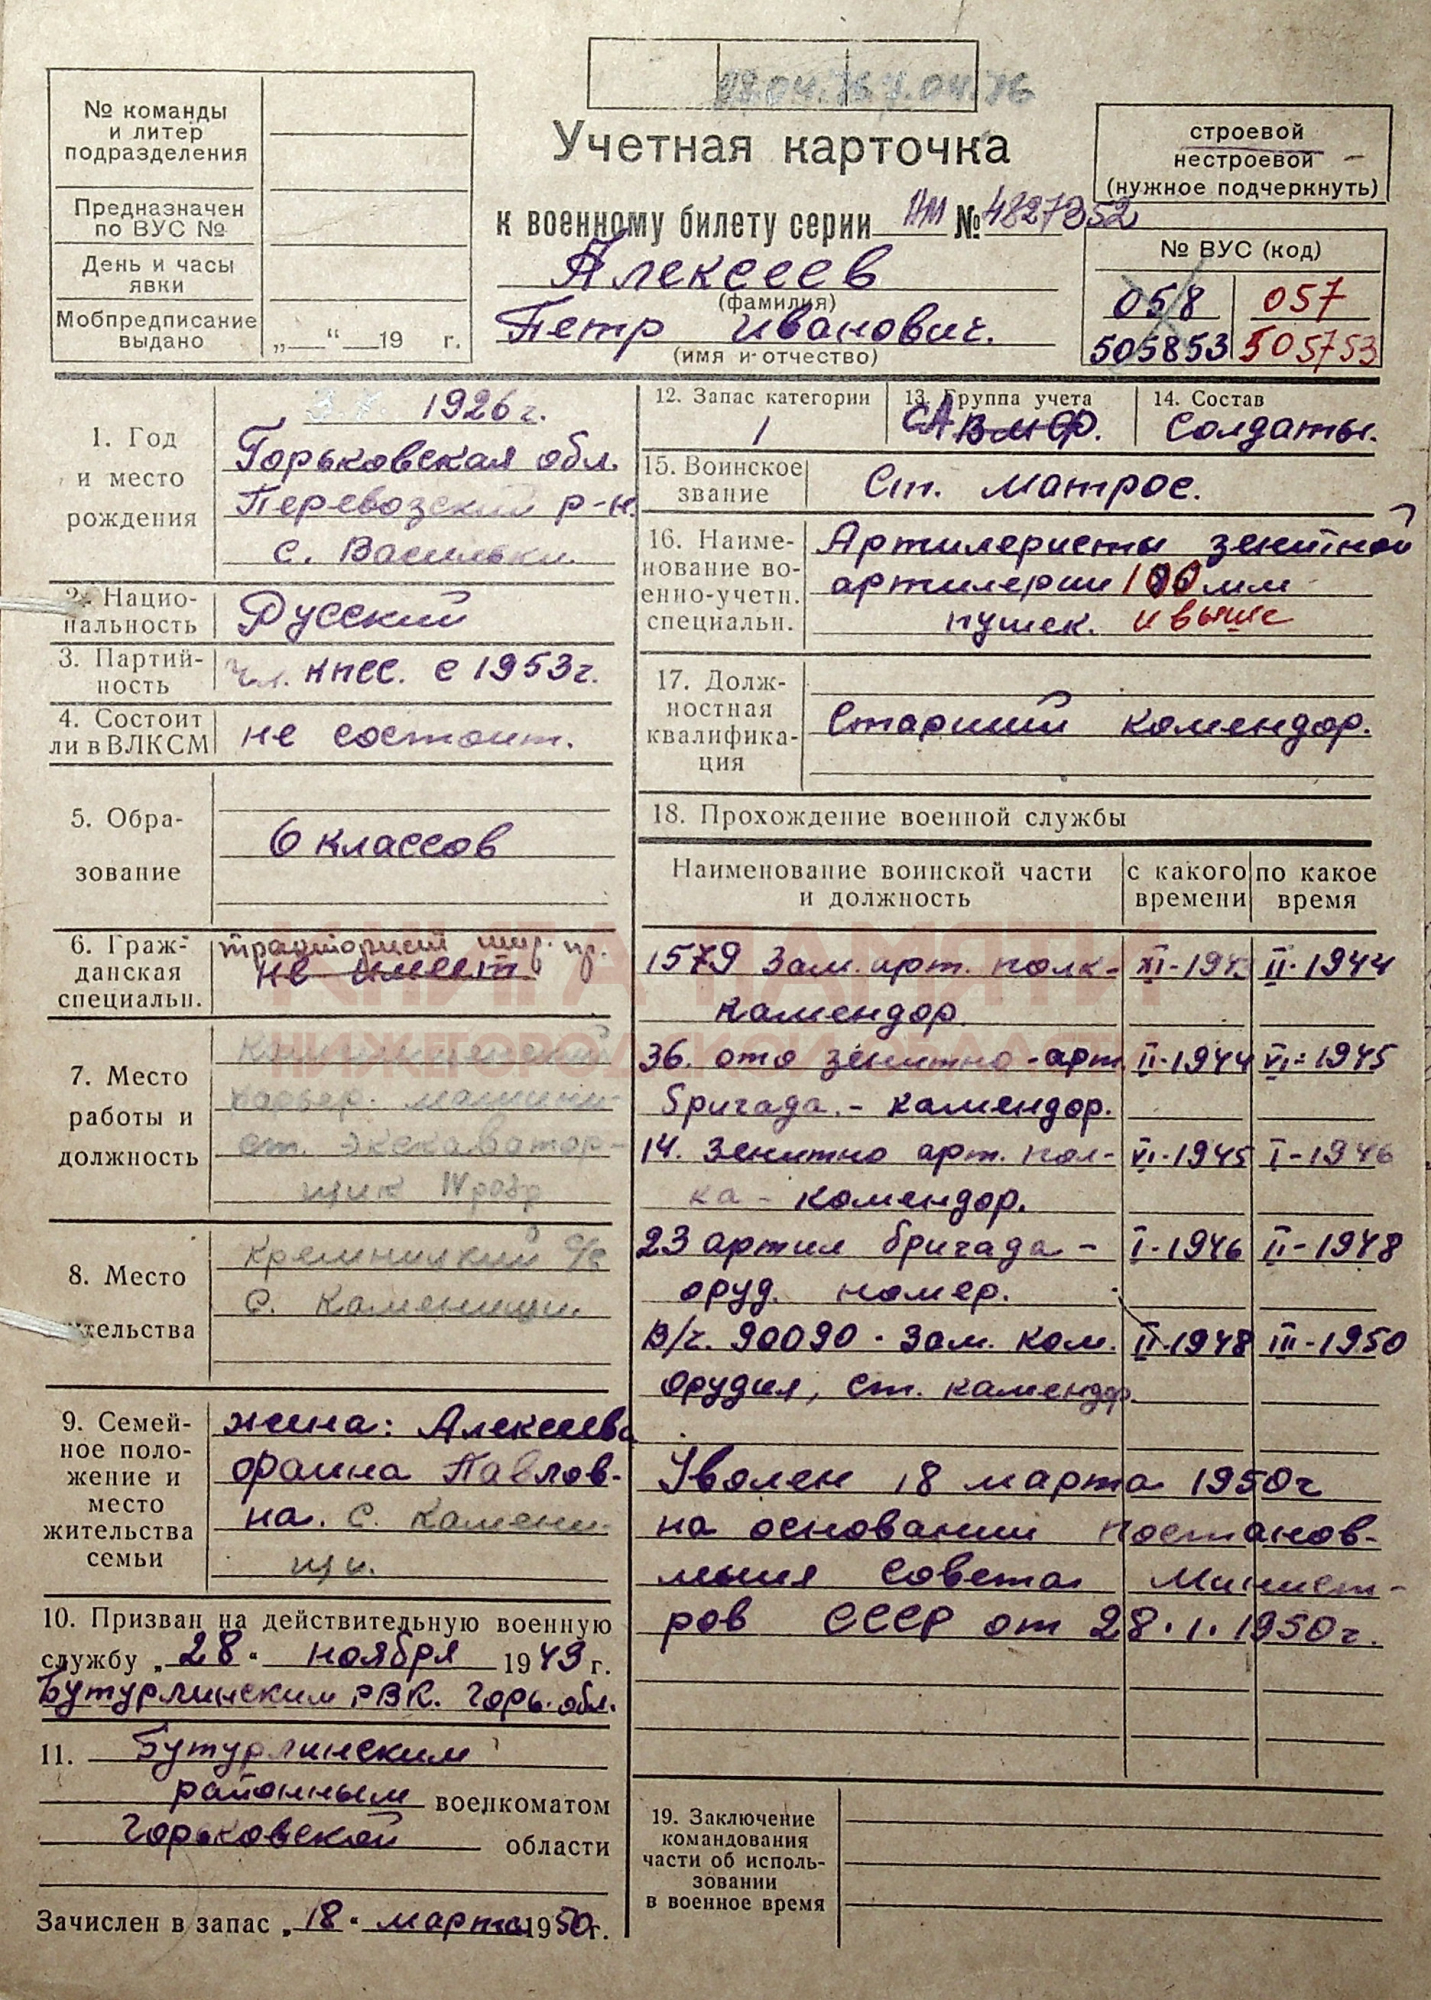 № команды
и литер
подразделения
Предназначен
по ВУС №
День и часы
явки
Мобпредписание
выдано
„ “ 19 г.
Учетная карточка
к военному билету серии НМ № 4827352
Алексеев
(фамилия)
Петр Иванович.
(имя и отчество)
строевой
нестроевой
(нужное подчеркнуть)
№ ВУС (код)
058 057
505853 505753
1. Год
и место
рождения
1926 г.
Горьковская обл.
Перевозский р-н.
с. Васильки.
2. Нацио-
нальность
Русский
3. Партий-
ность
чл. КПСС. с 1953 г.
4. Состоит
ли в ВЛКСМ
не состоит.
5. Обра-
зование
6 классов
6. Граж-
данская
специальн.
тракторист шир. пр.
не имеет
7. Место
работы и
должность
карьер. машини-
ст. экскаватор-
щик IV разр
8. Место
жительства
с. Каменищи.
9. Семей-
ное поло-
жение и
место
жительства
семьи
жена: Алексеева
Фаина Павлов-
на. с. Камени-
щи.
10. Призван на действительную военную
службу „28“ ноября 1943 г.
Бутурлинским РВК. Горь. обл.
11. Бутурлинским
районным военкоматом
Горьковской области
Зачислен в запас „18“ марта 1950 г.
12. Запас категории
1
13. Группа учета
СА ВМФ.
14. Состав
Солдаты.
15. Воинское
звание
Ст. матрос.
16. Наиме-
нование во-
енно-учетн.
специальн.
Артилеристы зенитной
артилерии 100 мм
пушек. и выше
17. Долж-
ностная
квалифика-
ция
Старший комендор.
18. Прохождение военной службы
Наименование воинской части
и должность
с какого
времени
по какое
время
1579 Зам. арт. полк- XI-1943 II-1944
камендор.
36. ото зенитно-арт. II-1944 VI-1945
бригада - камендор.
14. Зенитно арт. пол- VI-1945 I-1946
ка - комендор.
23 артил бригада - I-1946 II-1948
оруд. номер.
В/ч. 90090 - Зам. ком. II-1948 III-1950
орудия, ст. камендор
Уволен 18 марта 1950 г
на основании постанов-
ления Совета Минист-
ров СССР от 28.1.1950 г.
19. Заключение
командования
части об исполь-
зовании
в военное время
КНИГА ПАМЯТИ
НИЖЕГОРОДСКОЙ ОБЛАСТИ